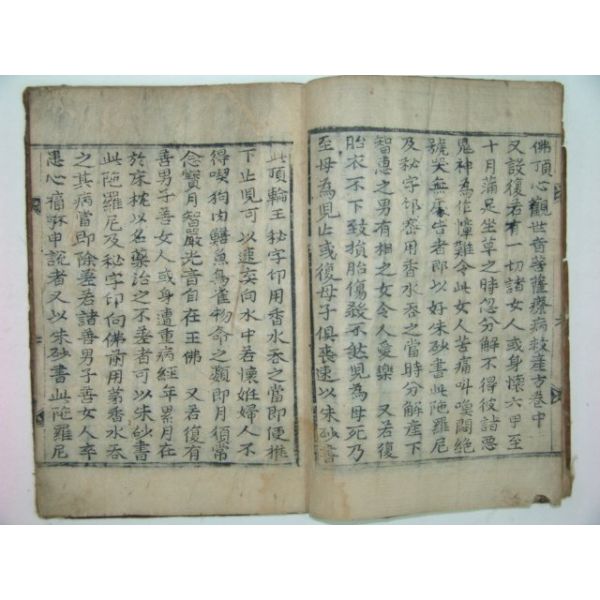 佛頂心觀世音菩薩療病救產方卷中
又設復若有一切諸女人或身懷六甲至
十月滿足坐草之時忽分解不得彼諸惡
鬼神為作憧難令此女人苦痛叫喚悶絶
號哭無處告者即以好朱砂書此陁羅尼
及秘字印密用香水吞之當時分解產下
智惠之男有相之女令人愛樂 又若復
胎衣不下致損胎傷殺不然兒為母死乃
至母為兒止或復母子俱喪速以朱砂書
此頂輪王秘字印用香水吞之當即便推
下止兒可以速弃向水中若懷姙婦人不
得喫狗肉鱔魚鳥雀物命之類即月須常
念寶月智嚴光音自在王佛 又若復有
善男子善女人或身遭重病經年累月在
於床枕以名藥治之不差者可以朱砂書
此陁羅尼及秘字印向佛前用茅香水吞
之其病當即除差若諸善男子善女人卒
患心痛 申說者又以朱砂書此陁羅尼